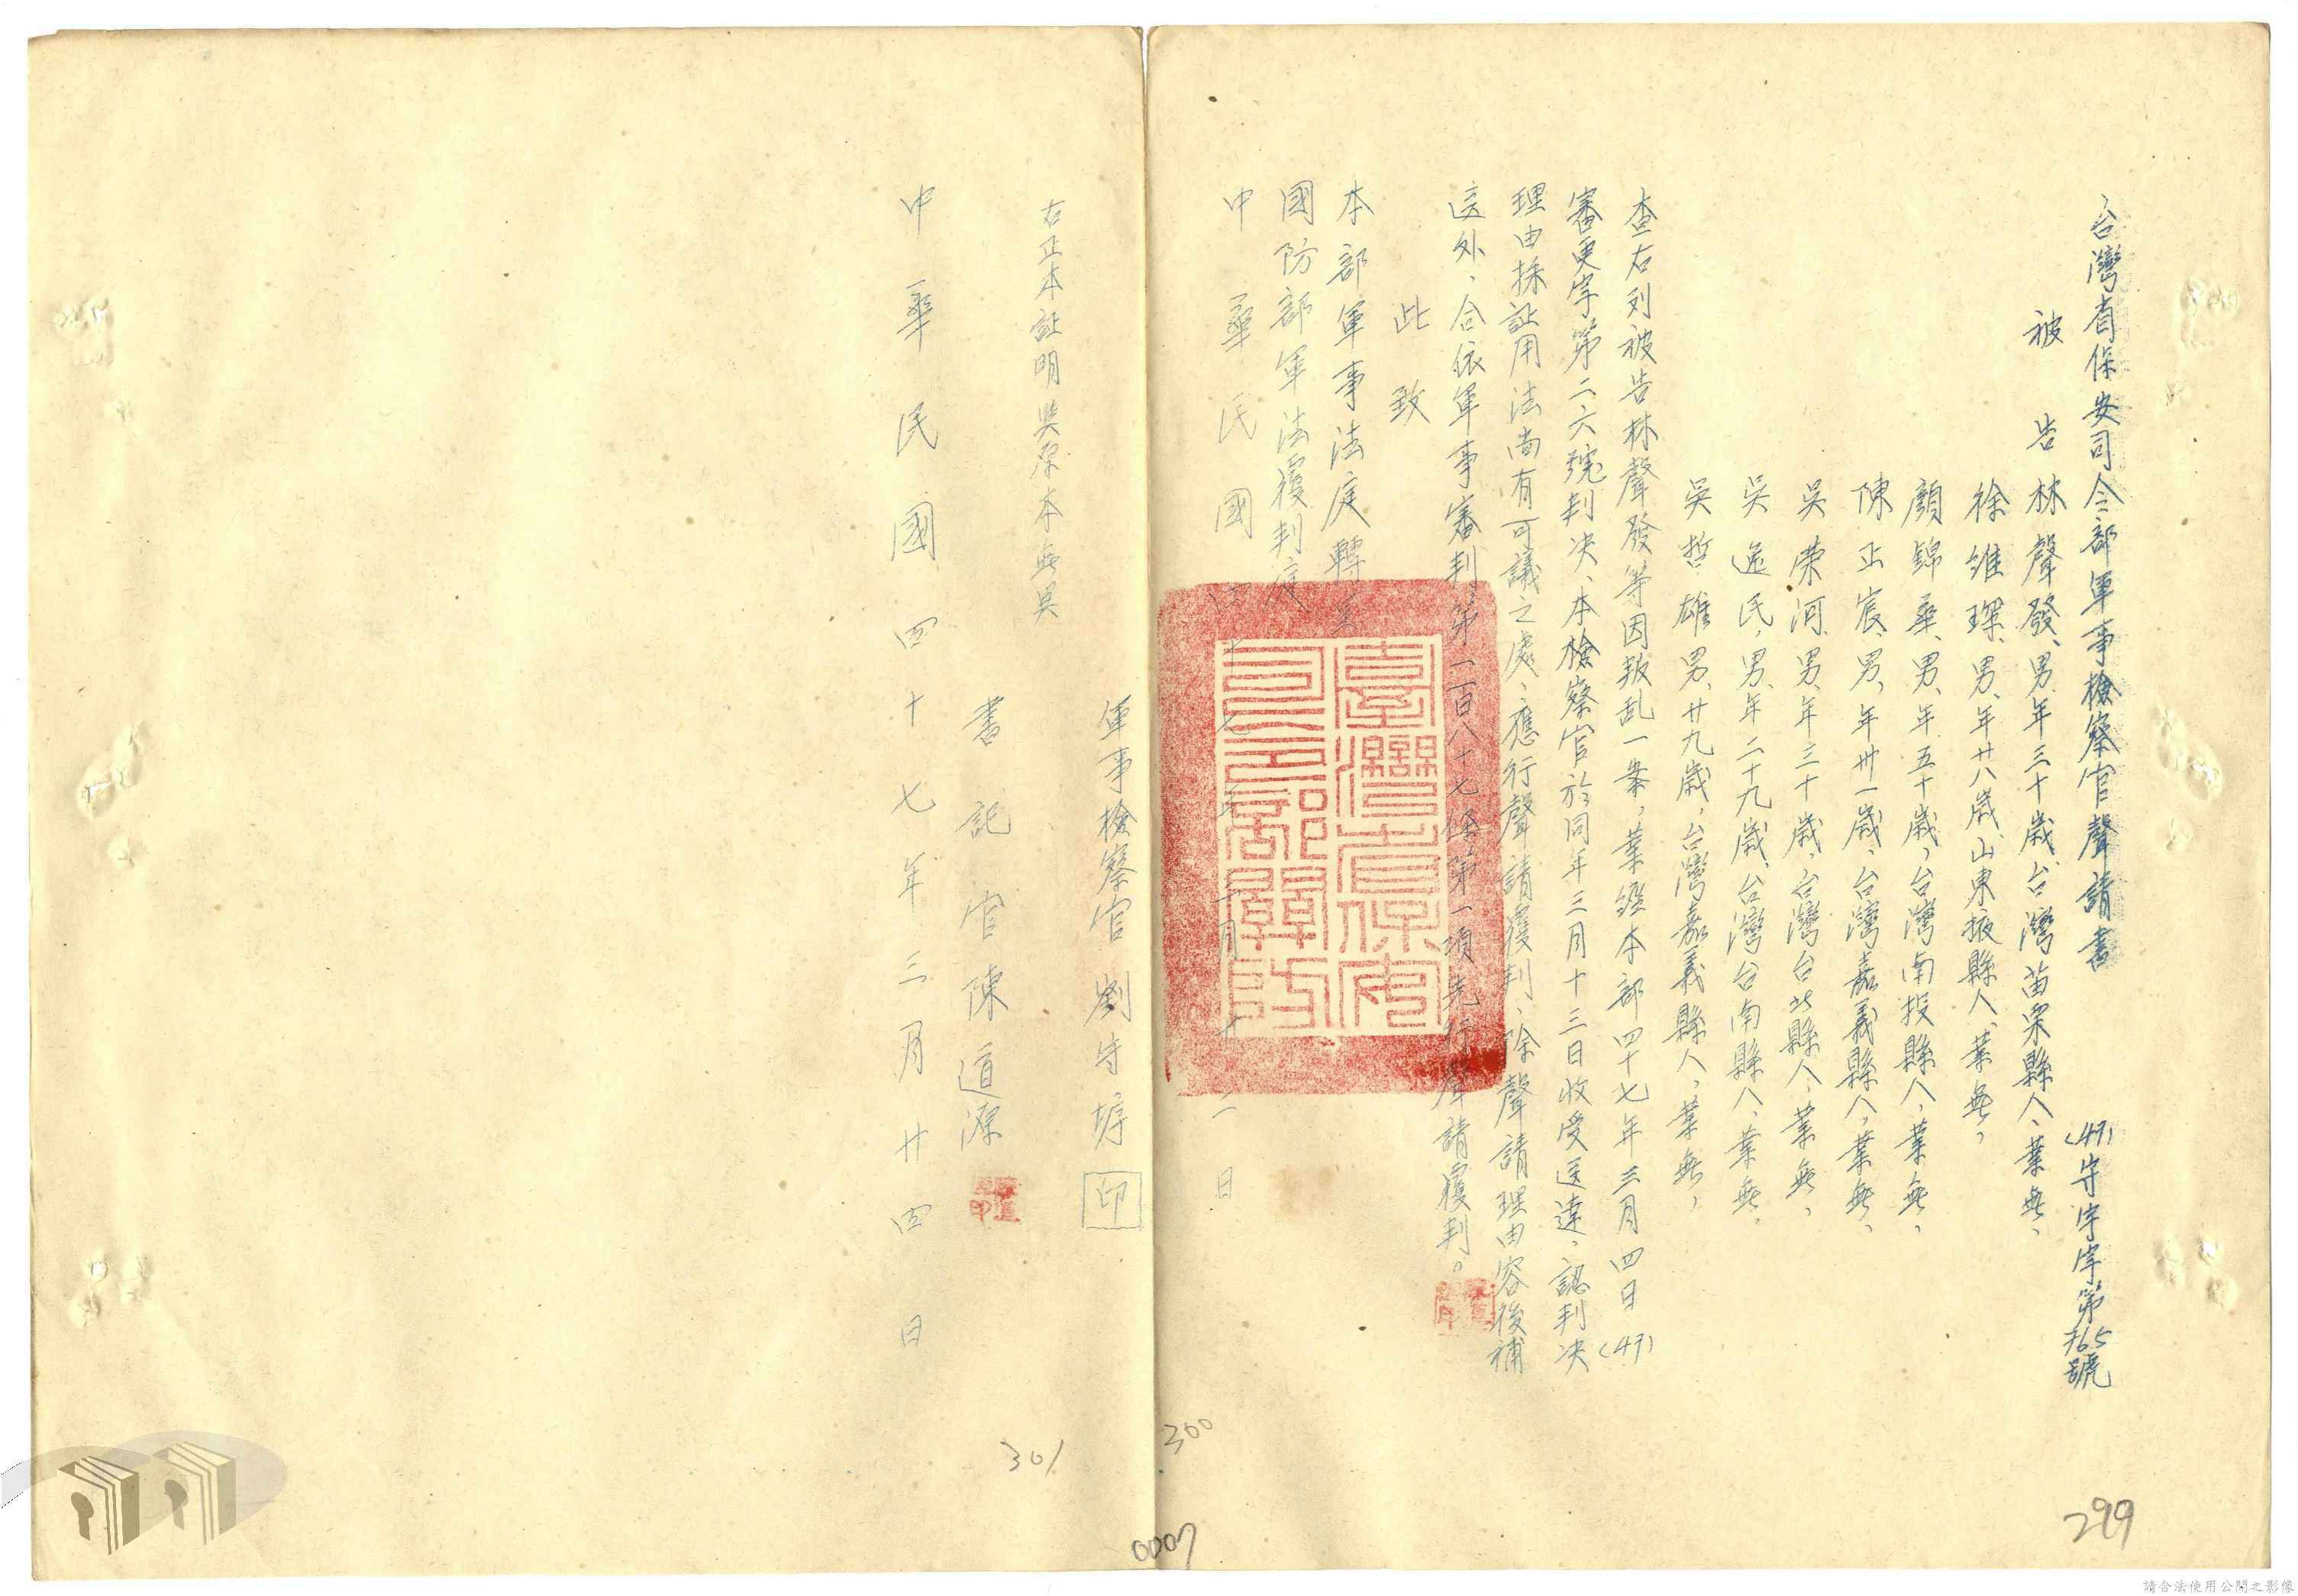 台灣省保安司令部軍事檢察官聲請書
(47)守字第765號
被告 林聲發、男、年三十歲、台灣苗栗縣人、業無、
徐維琛、男、年廿八歲、山東掖縣人、業無、
顏錦華、男、年五十歲、台灣南投縣人、業無、
陳正宸、男、年卅一歲、台灣嘉義縣人、業無、
吳榮河、男、年三十歲、台灣台北縣人、業無、
吳逸民、男、年二十九歲、台灣台南縣人、業無、
吳哲雄、男、廿九歲、台灣嘉義縣人、業無、
查右列被告林聲發等因叛乱一案，業經本部四十七年三月四日(47)
審更字第二六號判决、本檢察官於同年三月十三日收受送達，認判决
理由採証用法尚有可議之處、應行聲請覆判、除聲請理由容後補
送外，合依軍事審判第一百八十七條第一項先行聲請覆判。
此致
本部軍事法庭轉呈
國防部軍法覆判庭
中華民國四十七年三月廿二日
臺灣省保安司令部關防
軍事檢察官 劉守塝 印
右正本証明與原本無異
書記官陳道源
中華民國四十七年三月廿四日
299
300
301
0007
請合法使用公開之影像